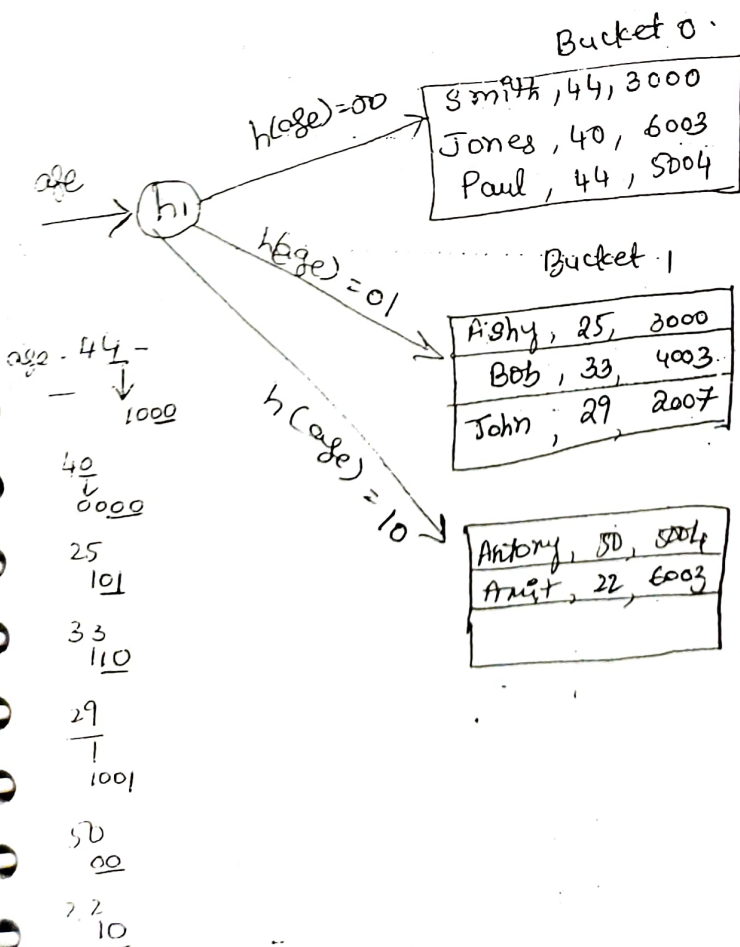 Bucket 0.
h(age)=00
Smith, 44, 3000
Jones, 40, 6003
Paul, 44, 5004
age
h1
h(age)=01
Bucket 1
Ashy, 25, 3000
Bob, 33, 4003
John, 29, 2007
h(age)=10
Antony, 50, 5004
Amit, 22, 6003
age. 44 -
1000
40
0000
25
101
33
110
29
1001
50
00
22
10